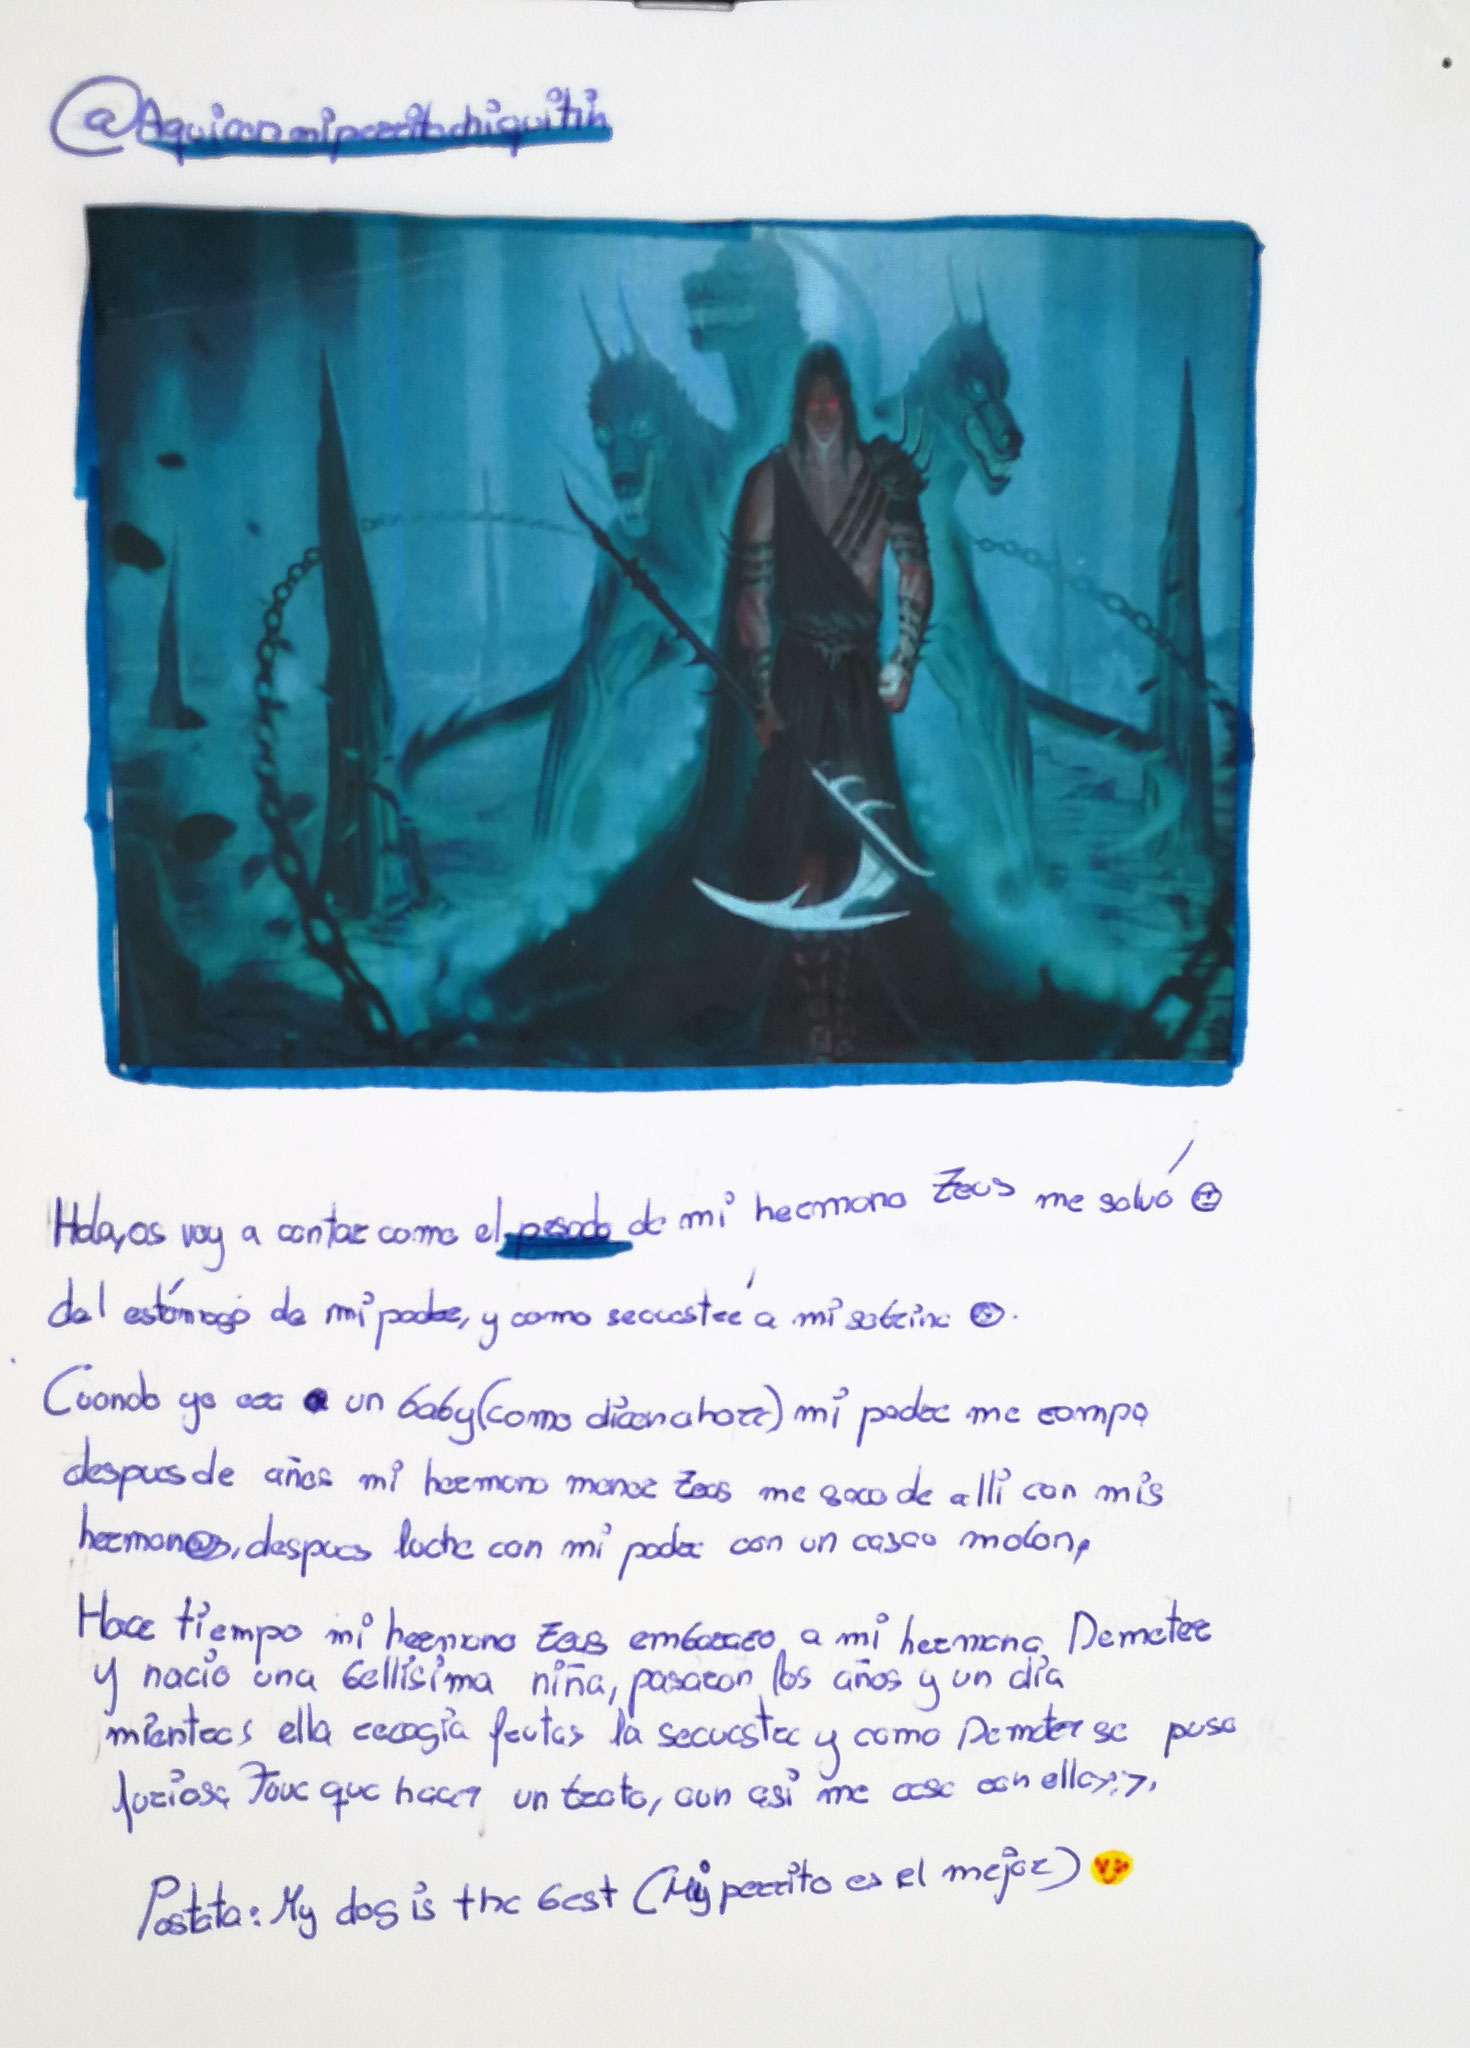 @Aquiconmiperritochiquitin
Hola, os voy a contar como el pesado de mi hermano Zeus me salvó
del estómago de mi padre, y como secuestré a mi sobrina
Cuando yo era un baby (como dicen ahora) mi padre me compo
despues de años mi hermano menor Zeus me saco de allí con mis
herman@s, despues luche con mi padre con un casco molon,
Hace tiempo mi hermano Zeus embarazo a mi hermana Demeter
y nacio una bellísima niña, pasaron los años y un día
mientras ella recogía frutas la secuestre y como Demeter se puso
furiosa Tuve que hacer un trato, aun así me case con ella>:>,
Postata: My dog is the best (Mi perrito es el mejor)